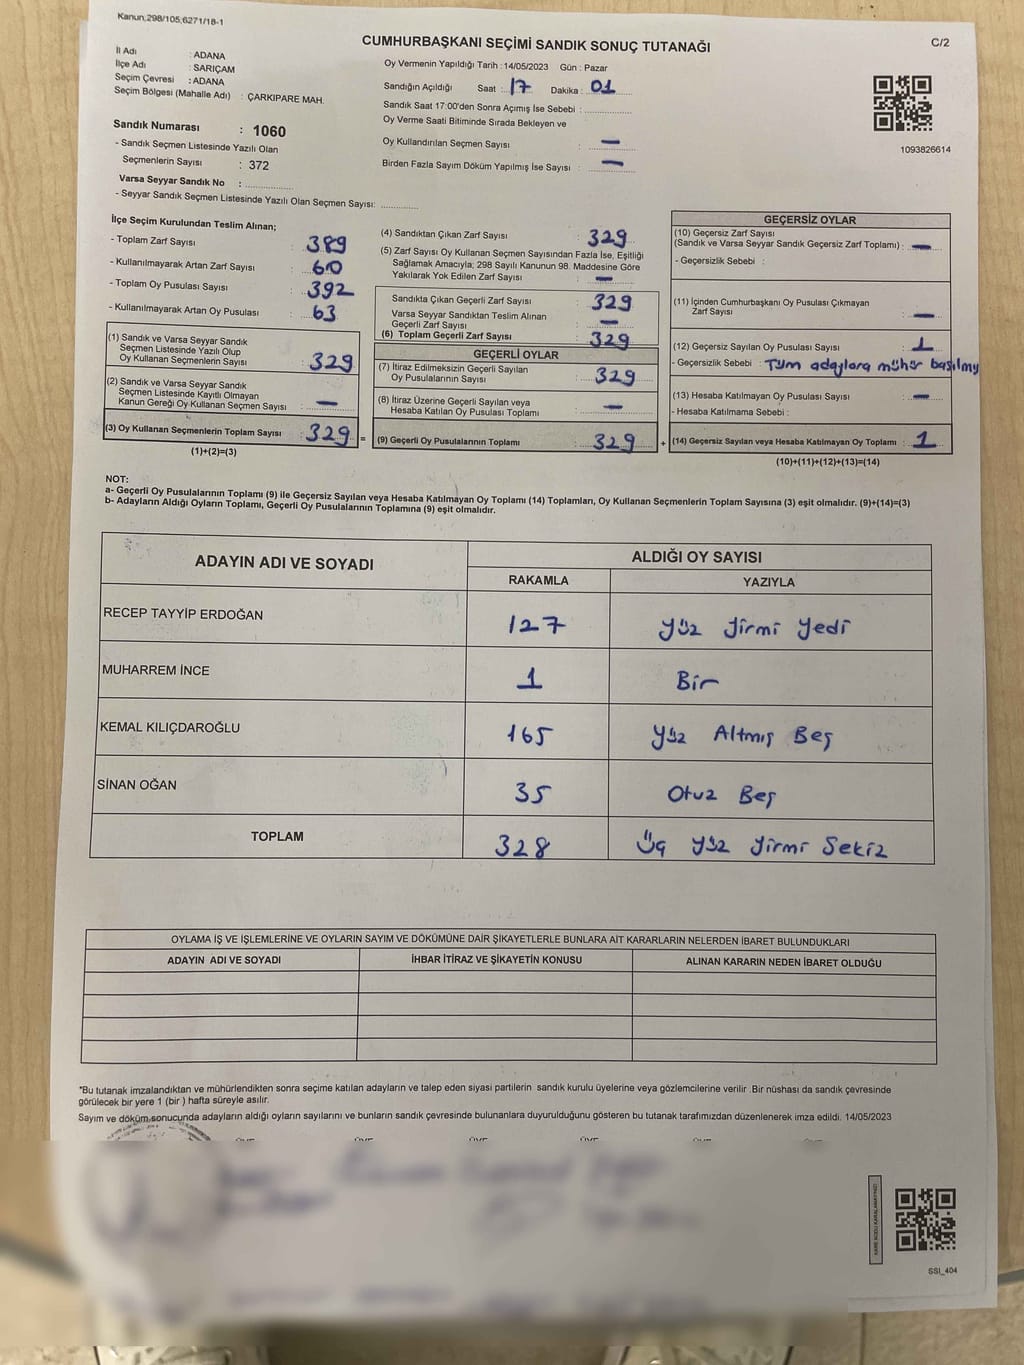 Kanun,298/105;6271/18-1
CUMHURBAŞKANI SEÇİMİ SANDIK SONUÇ TUTANAĞI
C/2
İl Adı : ADANA
İlçe Adı : SARIÇAM
Seçim Çevresi : ADANA
Seçim Bölgesi (Mahalle Adı) : ÇARKIPARE MAH.
Sandık Numarası : 1060
- Sandık Seçmen Listesinde Yazılı Olan
Seçmenlerin Sayısı : 372
Varsa Seyyar Sandık No : ..............
- Seyyar Sandık Seçmen Listesinde Yazılı Olan Seçmen Sayısı: ............
Oy Vermenin Yapıldığı Tarih : 14/05/2023 Gün : Pazar
Sandığın Açıldığı Saat : 17 Dakika : 01
Sandık Saat 17:00'den Sonra Açımış İse Sebebi : ..............
Oy Verme Saati Bitiminde Sırada Bekleyen ve
Oy Kullandırılan Seçmen Sayısı : —
Birden Fazla Sayım Döküm Yapılmış İse Sayısı : —
1093826614
İlçe Seçim Kurulundan Teslim Alınan;
- Toplam Zarf Sayısı : 389
- Kullanılmayarak Artan Zarf Sayısı : 60
- Toplam Oy Pusulası Sayısı : 392
- Kullanılmayarak Artan Oy Pusulası : 63
(1) Sandık ve Varsa Seyyar Sandık
Seçmen Listesinde Yazılı Olup
Oy Kullanan Seçmenlerin Sayısı : 329
(2) Sandık ve Varsa Seyyar Sandık
Seçmen Listesinde Kayıtlı Olmayan
Kanun Gereği Oy Kullanan Seçmen Sayısı : —
(3) Oy Kullanan Seçmenlerin Toplam Sayısı : 329 =
(1)+(2)=(3)
(4) Sandıktan Çıkan Zarf Sayısı : 329
(5) Zarf Sayısı Oy Kullanan Seçmen Sayısından Fazla İse, Eşitliği
Sağlamak Amacıyla; 298 Sayılı Kanunun 98. Maddesine Göre
Yakılarak Yok Edilen Zarf Sayısı : —
Sandıkta Çıkan Geçerli Zarf Sayısı : 329
Varsa Seyyar Sandıktan Teslim Alınan
Geçerli Zarf Sayısı : —
(6) Toplam Geçerli Zarf Sayısı : 329
GEÇERLİ OYLAR
(7) İtiraz Edilmeksizin Geçerli Sayılan
Oy Pusulalarının Sayısı : 329
(8) İtiraz Üzerine Geçerli Sayılan veya
Hesaba Katılan Oy Pusulası Toplamı : —
(9) Geçerli Oy Pusulalarının Toplamı : 329 +
GEÇERSİZ OYLAR
(10) Geçersiz Zarf Sayısı
(Sandık ve Varsa Seyyar Sandık Geçersiz Zarf Toplamı) : —
- Geçersizlik Sebebi :
(11) İçinden Cumhurbaşkanı Oy Pusulası Çıkmayan
Zarf Sayısı : —
(12) Geçersiz Sayılan Oy Pusulası Sayısı : 1
- Geçersizlik Sebebi : Tüm adaylara mühür basılmış
(13) Hesaba Katılmayan Oy Pusulası Sayısı : —
- Hesaba Katılmama Sebebi :
(14) Geçersiz Sayılan veya Hesaba Katılmayan Oy Toplamı : 1
(10)+(11)+(12)+(13)=(14)
NOT:
a- Geçerli Oy Pusulalarının Toplamı (9) ile Geçersiz Sayılan veya Hesaba Katılmayan Oy Toplamı (14) Toplamları, Oy Kullanan Seçmenlerin Toplam Sayısına (3) eşit olmalıdır. (9)+(14)=(3)
b- Adayların Aldığı Oyların Toplamı, Geçerli Oy Pusulalarının Toplamına (9) eşit olmalıdır.
ADAYIN ADI VE SOYADI
ALDIĞI OY SAYISI
RAKAMLA YAZIYLA
RECEP TAYYİP ERDOĞAN 127 Yüz Yirmi Yedi
MUHARREM İNCE 1 Bir
KEMAL KILIÇDAROĞLU 165 Yüz Altmış Beş
SİNAN OĞAN 35 Otuz Beş
TOPLAM 328 Üç Yüz Yirmi Sekiz
OYLAMA İŞ VE İŞLEMLERİNE VE OYLARIN SAYIM VE DÖKÜMÜNE DAİR ŞİKAYETLERLE BUNLARA AİT KARARLARIN NELERDEN İBARET BULUNDUKLARI
ADAYIN ADI VE SOYADI İHBAR İTİRAZ VE ŞİKAYETİN KONUSU ALINAN KARARIN NEDEN İBARET OLDUĞU
"Bu tutanak imzalandıktan ve mühürlendikten sonra seçime katılan adayların ve talep eden siyasi partilerin sandık kurulu üyelerine veya gözlemcilerine verilir .Bir nüshası da sandık çevresinde
görülecek bir yere 1 (bir ) hafta süreyle asılır.
Sayım ve döküm sonucunda adayların aldığı oyların sayılarını ve bunların sandık çevresinde bulunanlara duyurulduğunu gösteren bu tutanak tarafımızdan düzenlenerek imza edildi. 14/05/2023
KARE KODU KARALAMAYINIZ!
SSI_404